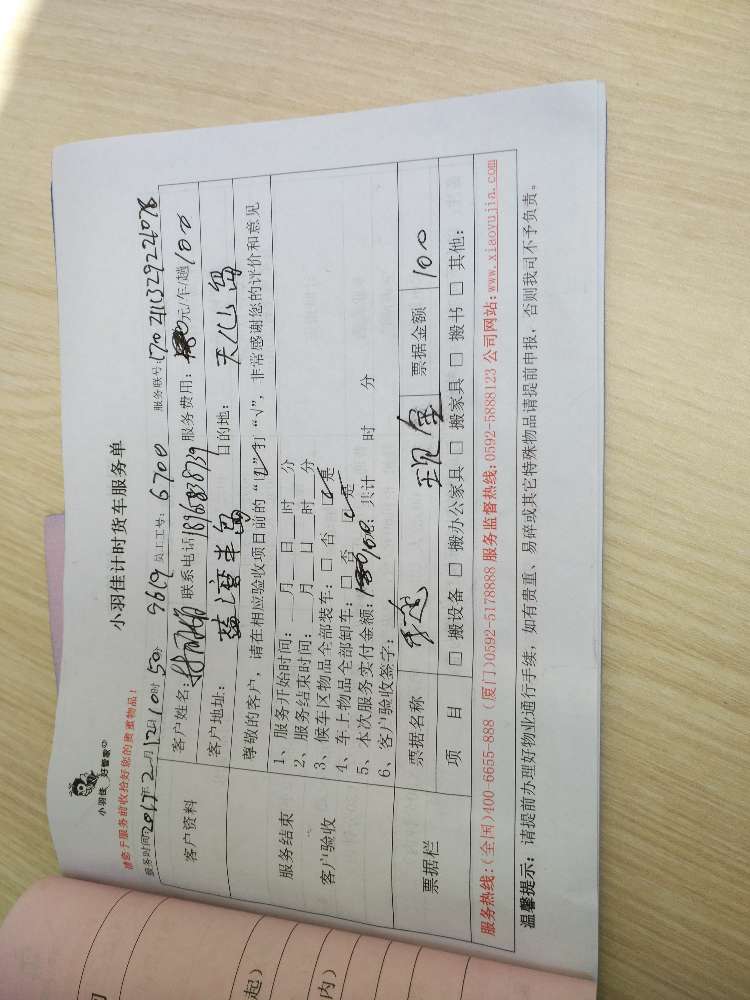 小羽佳 好管家
小羽佳计时货车服务单
请您于服务前收拾好您的贵重物品！
服务时间：2017年2月12日10时50分 9619 员工工号：6700 服务联号：
客户资料
客户姓名： 联系电话 服务费用： 元/车/趟 100
客户地址：蓝湾半岛 目的地：天心岛
尊敬的客户，请在相应验收项目前的“口”打“√”，非常感谢您的评价和意见
服务结束
客户验收
1、服务开始时间：___月___日___时___分
2、服务结束时间：___月___日___时___分
3、候车区物品全部装车：□ 否 ☑ 是
4、车上物品全部卸车：□ 否 ☑ 是
5、本次服务实付金额： 元；共计 时 分
6、客户验收签字：
票据栏
票据名称 现金 票据金额 100
项 目 □ 搬设备 □ 搬办公家具 □ 搬家具 □ 搬书 □ 其他：
服务热线：(全国)400-6655-888 (厦门)0592-5178888 服务监督热线：0592-5888123 公司网站：www.xiaoyujia.com
温馨提示：请提前办理好物业通行手续，如有贵重、易碎或其它特殊物品请提前申报，否则我司不予负责。
起）
内）